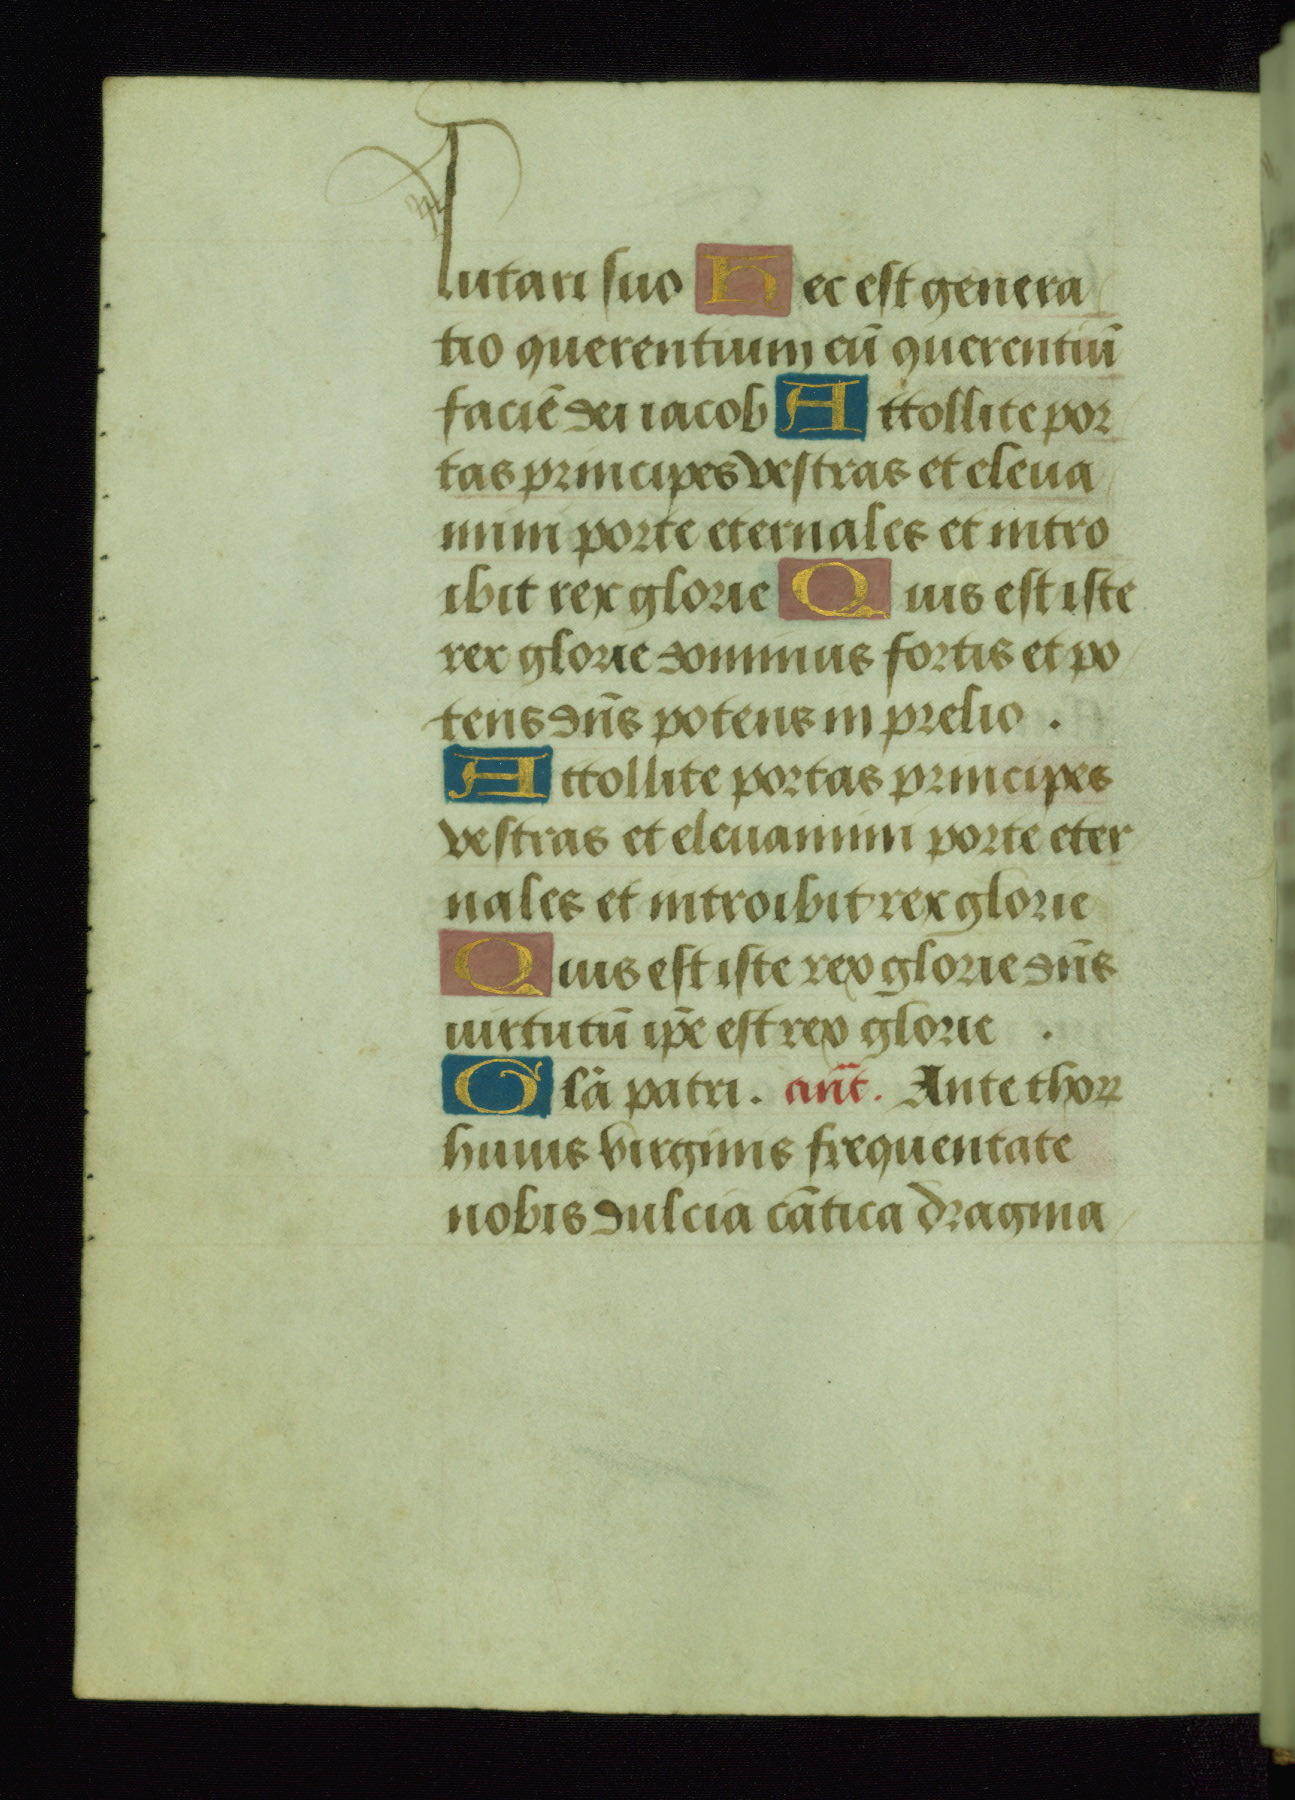 lutari suo Hec est genera
tio querentium eū querentiū
faciē dei iacob Attollite por
tas principes vestras et eleua
mini porte eternales et intro
ibit rex glorie Quis est iste
rex glorie dominus fortis et po
tens dn̄s potens in prelio .
Attollite portas principes
vestras et eleuamini porte eter
nales et introibit rex glorie
Quis est iste rex glorie dn̄s
uirtutū ip̄e est rex glorie .
Glā patri . ant̄. Ante thorꝝ
huius virginis frequentate
nobis dulcia cātica dragma